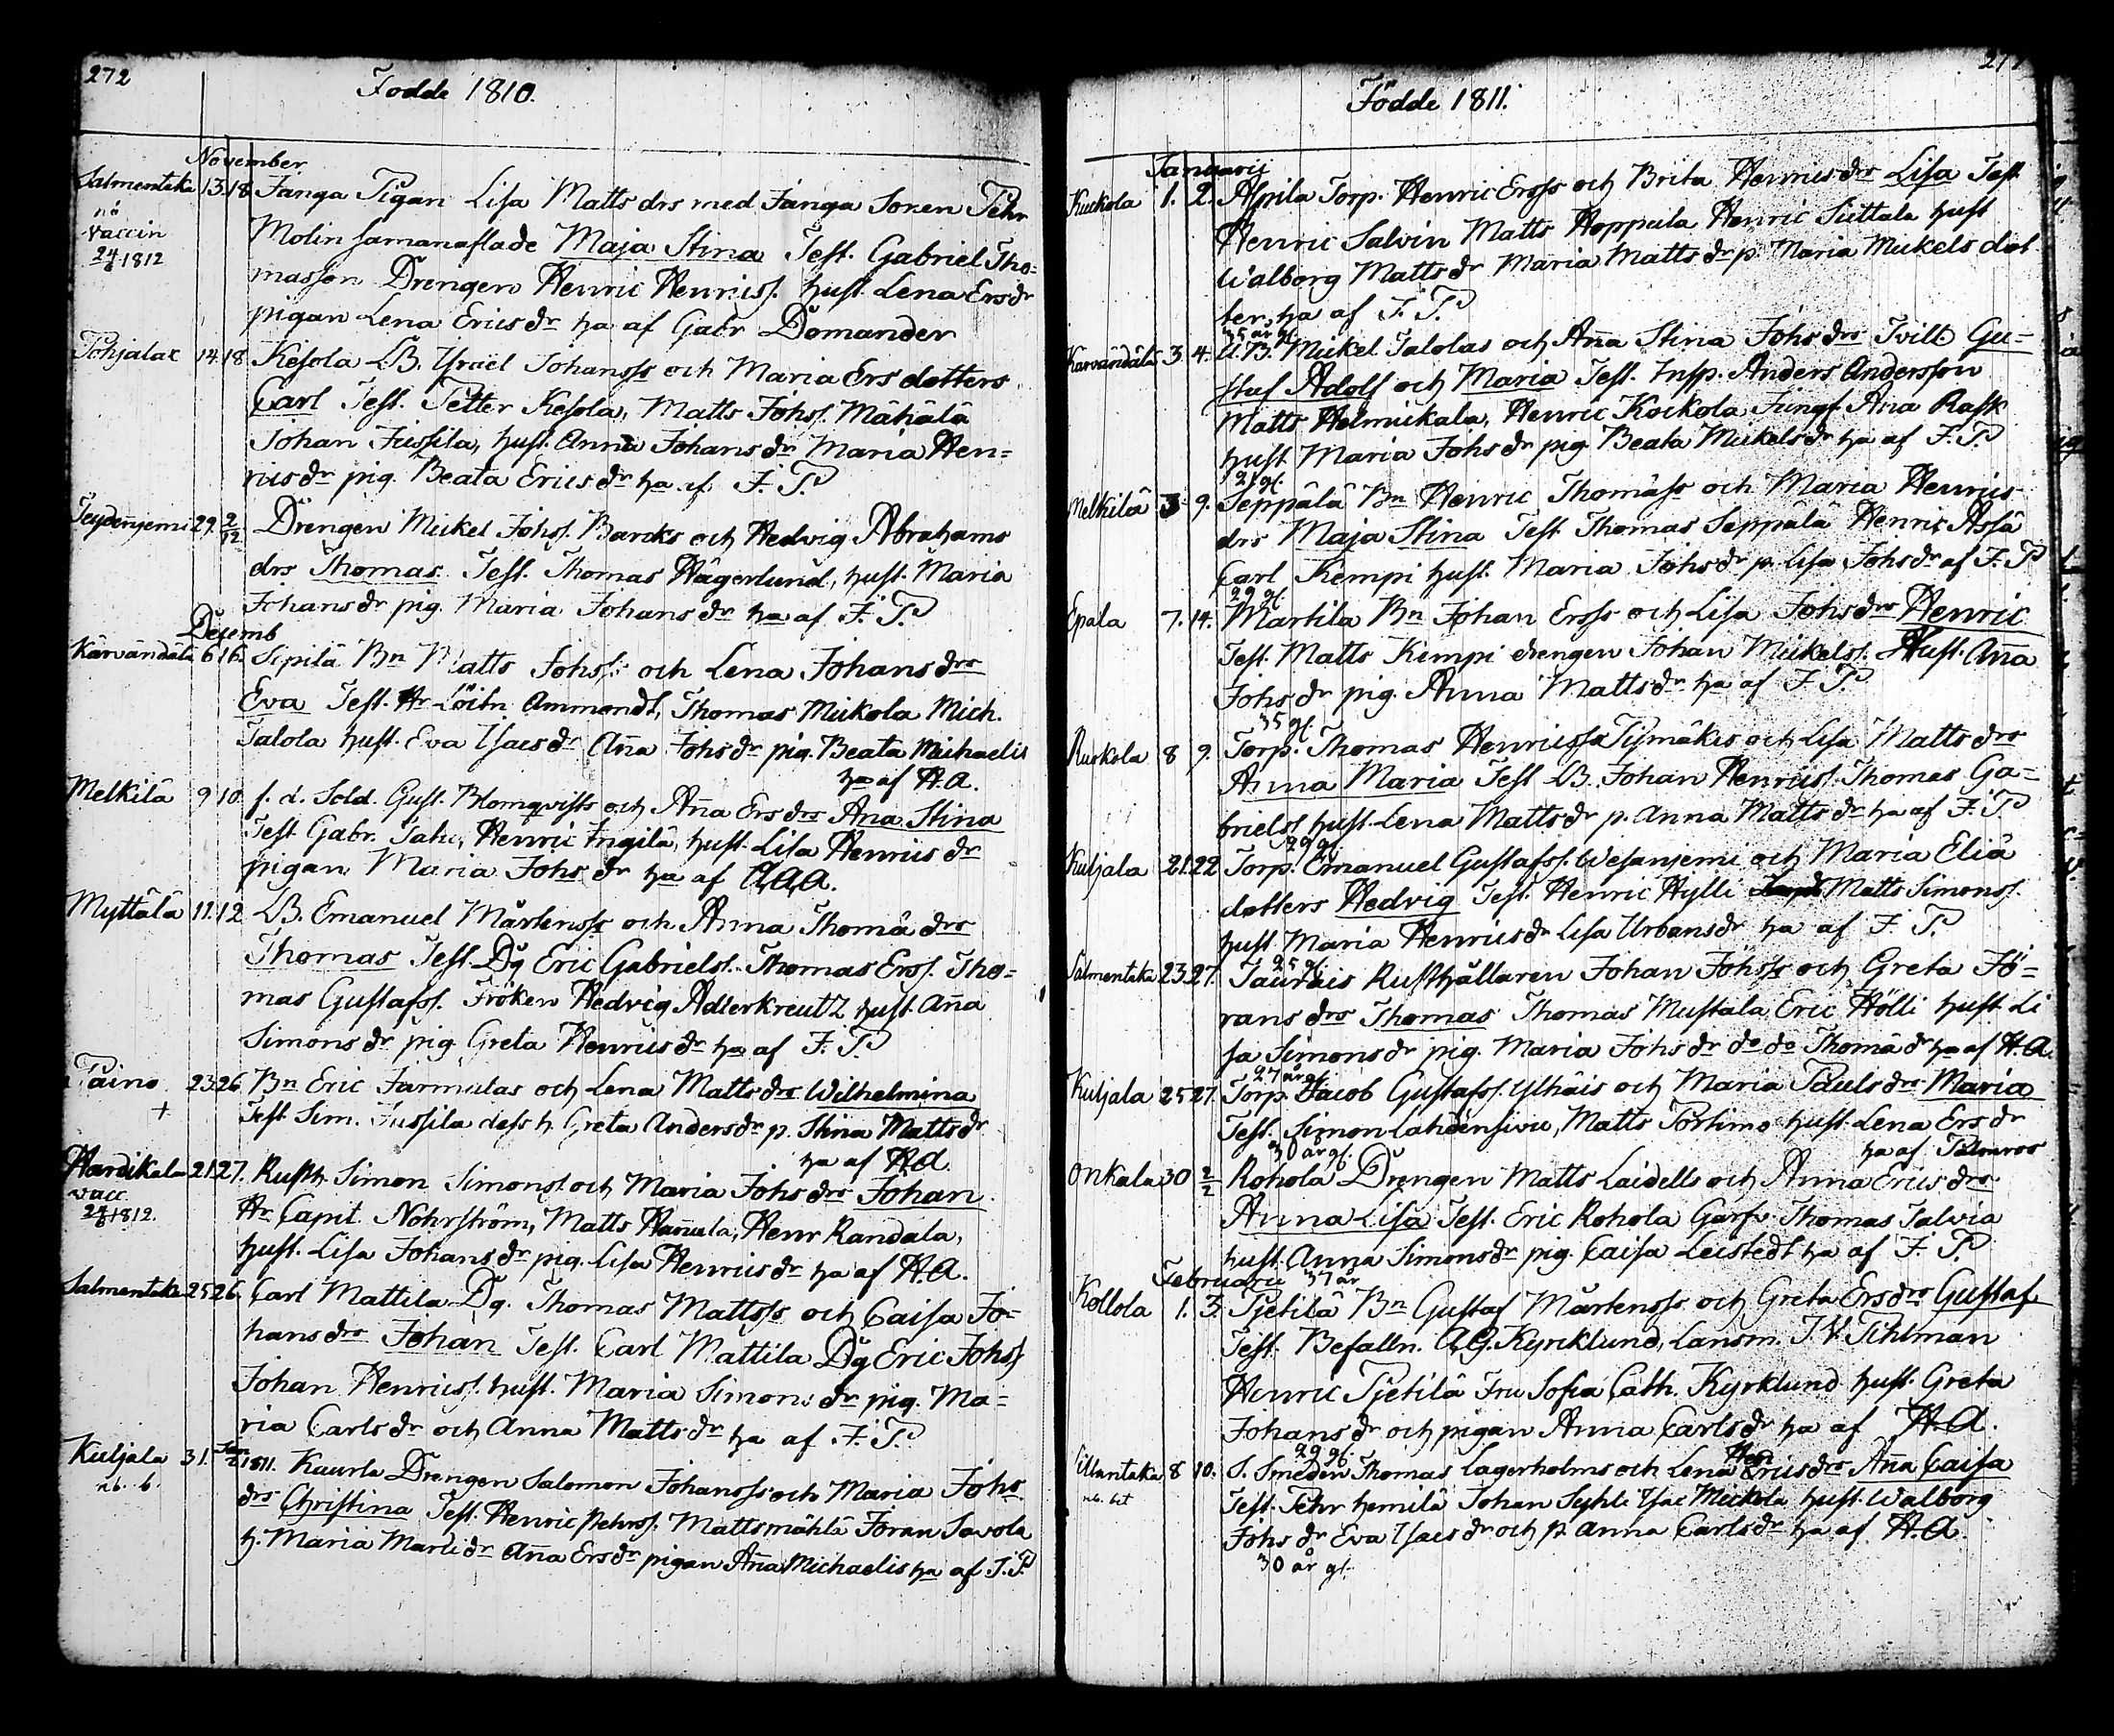 272
Fodde 1810.
November
Salmentaka 13. 18. Fånga Pigan Lisa Matts drs med Fånga Sonen Pehr
nö
vaccin
24/ 1812
Molin samanaflade Maja Stina Test. Gabriel Tho=
masson Drengen Henric Henriss. hust. Lena Ersdr
pigan Lena Ericsdr ha af Gabr Domander
Pohjalax 14. 18. Kesola LB. Israel Johanss och Maria Ersdotters
Carl Test. Petter Kesola, Matts Johss. Mähälä
Johan Jussila, hust. Anna Johansdr Maria Hen=
ricsdr pig. Beata Ericsdr ha af F. P.
29. 2/12 Drengen Mickel Johss. Barcks och Hedvig Abrahams
drs Thomas. Test. Thomas Hägerlund, hust. Maria
Johansdr pig. Maria Johansdr ha af F. P.
Decemb
Kärvändälä 6 16. Sipilä Bn Matts Johss. och Lena Johansdrs
Eva Test. Hr Löitn Ammondt, Thomas Mickola Mich.
Talola hust. Eva Isacsdr Aña Johsdr pig. Beata Michaelis
ha af H. A.
Melkilä 9 10. f. d. Sold. Gust. Blomqvists och Aña Ersdrs Ana Stina
Test Gabr. Henric Ingilä, hust. Lisa Henricsdr
pigan Maria Johsdr ha af A, A, A.
Myttälä 11. 12. LB. Emanuel Mårtenss och Anna Thomä drs
Thomas Test. Dg Eric Gabrielss. Thomas Erss. Tho=
mas Gustafss. Fröken Hedvig Adlerkreutz hust. Aña
Simonsdr pig Greta Henricsdr ha af F. P.
Paino 23 26. Bn Eric Jarmulas och Lena Mattsdrs Wilhelmina
+
Test Sim. Jussila dess h. Greta Andersdr p. Stina Mattsdr
ha af H. A.
Hardikala 21 27. Rusth. Simon Simons. och Maria Johsdrs Johan
vacc.
24/ 1812.
Hr Capit. Nohrström, Matts Hañula, Henr Randala,
hust. Lisa Johansdr pig. Lisa Henricsdr ha af H. A.
Salmentaka 25 26. Carl Mattila Dg. Thomas Mattss och Caisa Jo=
hansdrs Johan Test. Carl Mattila Dg Eric Johss
Johan Henricss. hust. Maria Simonsdr pig. Ma=
ria Carlsdr och Anna Mattsdr ha af F. P.
Kuljala 31. 1811. Kaurla Drengen Salomon Johanss och Maria Johs
nb. b.
drs Christina Test. Henric Pehrss. Matts mählä Jöran Savola
h. Maria Aña Ersdr pigan Aña Michaelis ha af F. P.
Födde 1811.
Januarij
Kuckola 1. 2. Torp. Henric Erss och Brita Henricsdrs Lisa Test
Henric Salvin Matts Heppula Henric Suttala hust
Walborg Mattsdr Maria Mattsdr p. Maria Mickels dot
ter, ha af F. P.
35 år gl.
Karvändälä 3. 4. Mickel Talolas och Aña Stina Johsdrs Tvill. Gu=
staf Adolf och Maria Test. Insp. Anders Andersson
Matts Holmickala, Henric Kockola Jungf. Ana Rask
hust Maria Johsdr pig Beata Mickelsdr ha af F. P.
gl.
Melkilä 3. 9. Seppälä Bn Henric Thomäss och Maria Henrics
drs Maja Stina Test Thomas Seppälä Henric Assä
Carl Kempi hust. Maria Johsdr p. Lisa Johsdr af F. P
29 gl.
Epala 7. 14. Martila Bn Johan Erss och Lisa Johsdrs Henric
Test. Matts Kempi drengen Johan Mickelss. Hust. Aña
Johsdr pig. Anna Mattsdr ha af F. P.
35 gl.
Ruokola 8 9. Torp. Thomas Henricss och Lisa Mattsdrs
Anna Maria Test LB. Johan Henricss. Thomas Ga=
brielss hust. Lena Mattsdr p. Anna Mattsdr ha af F. P
29 gl.
Kuljala 21. 22 Torp. Emanuel Gustafss. Wesanjemi och Maria Eliä
dotters Hedvig Test. Henric Hylli Matts Simonss.
hust Maria Henricsdr Lisa Urbansdr ha af F. P.
25 gl.
Salmentaka 23. 27. Rusthållaren Johan Johss och Greta Jö=
rans drs Thomas Thomas Mustala Eric Hölli hust Li
sa Simonsdr pig. Maria Johsdr do do Thomädr ha af H. A.
27 år gl.
Kuljala 25 27. Torp. Jacob Gustafss. och Maria Paulsdrs Maria
Test. Simon Lahdensivu, Matts Portimo hust. Lena Ersdr
30 år gl. ha af Palmroos
Onkala 30 2/2 Rohola Drengen Matts Laidells och Anna Ericsdrs
Anna Lisa Test. Eric Rohola Garfv. Thomas Talvia
hust. Anna Simonsdr pig. Caisa Leistedt ha af F. P.
Februarii 37 år
Kollola 1. 3. Pjetilä Bn Gustaf Mårtenss och Greta Ersdrs Gustaf
Test. Befalln. A. G. Kyrcklund, Lansm. J. V. Tihlman
Henric Pjetilä Fru Sofia Cath. Kyrklund hust. Greta
Johansdr och pigan Anna Carlsdr ha af H. A.
29 gl.
8 10. S. Smeden Thomas Lagerholms och Lena Henricsdrs Aña Caisa
nb. bet
Test. Pehr hemilä Johan Syhli Isac Mickola hust. Walborg
Johsdr Eva Isacsdr och p. Anna Carlsdr ha af H. A.
30 år gl.